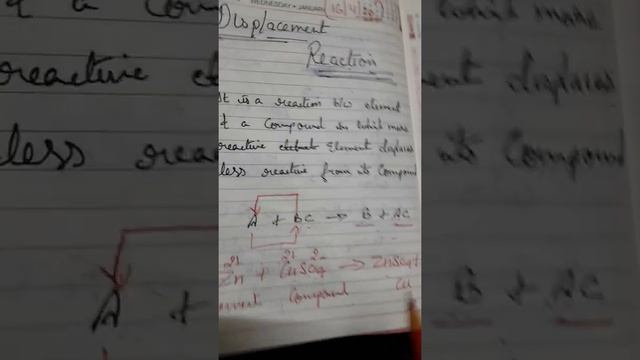 WEDNESDAY • JANUARY
Displacement
Reaction
It is a reaction b/w element
& a Compound in which more
reactive Element displaces
less reactive from its Compound
A + BC → B + AC
Zn + CuSO4 → ZnSO4 +
Cu
Compound